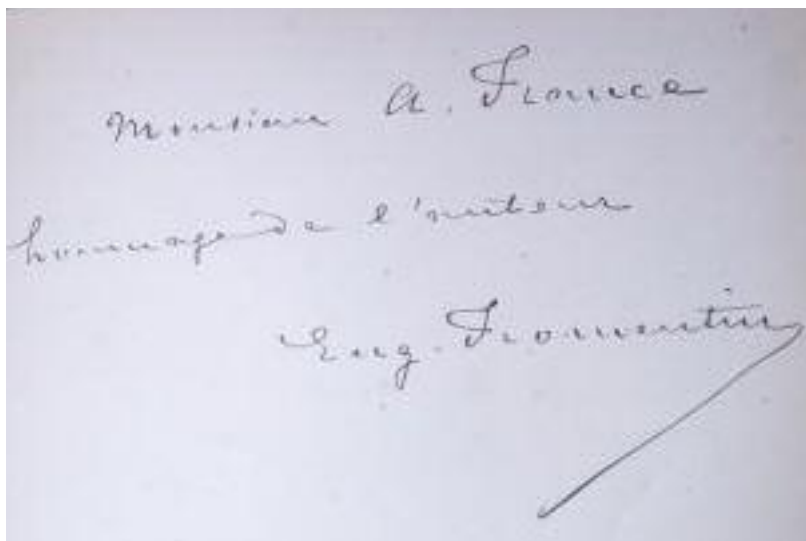 Monsieur A. France
hommage de l'auteur
Eug. Fromentin